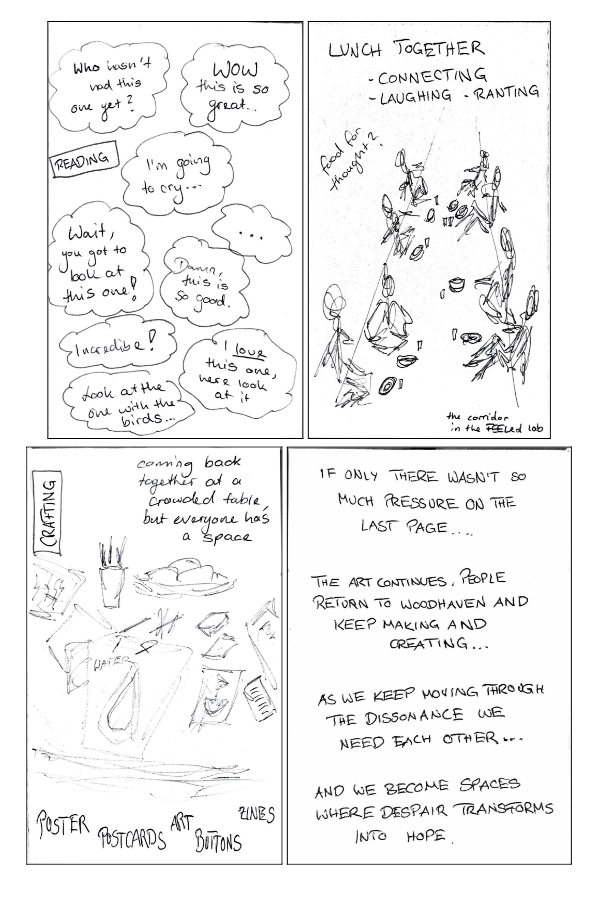 Who hasn't
had this
one yet?
WOW
this is so
great..
READING
I'm going
to cry...
...
Wait,
you got to
look at
this one!
Damn,
this is
so good.
Incredible!
I love
this one,
here look
at it
Look at the
one with the
birds...
LUNCH TOGETHER
- CONNECTING
- LAUGHING - RANTING
food for
thought?
the corridor
in the FEELed lab
CRAFTING
coming back
together at a
crowded table,
but everyone has
a space
WATER
POSTER
POSTCARDS
ART
BUTTONS
ZINES
IF ONLY THERE WASN'T SO
MUCH PRESSURE ON THE
LAST PAGE....
THE ART CONTINUES, PEOPLE
RETURN TO WOODHAVEN AND
KEEP MAKING AND
CREATING...
AS WE KEEP MOVING THROUGH
THE DISSONANCE WE
NEED EACH OTHER...
AND WE BECOME SPACES
WHERE DESPAIR TRANSFORMS
INTO HOPE.